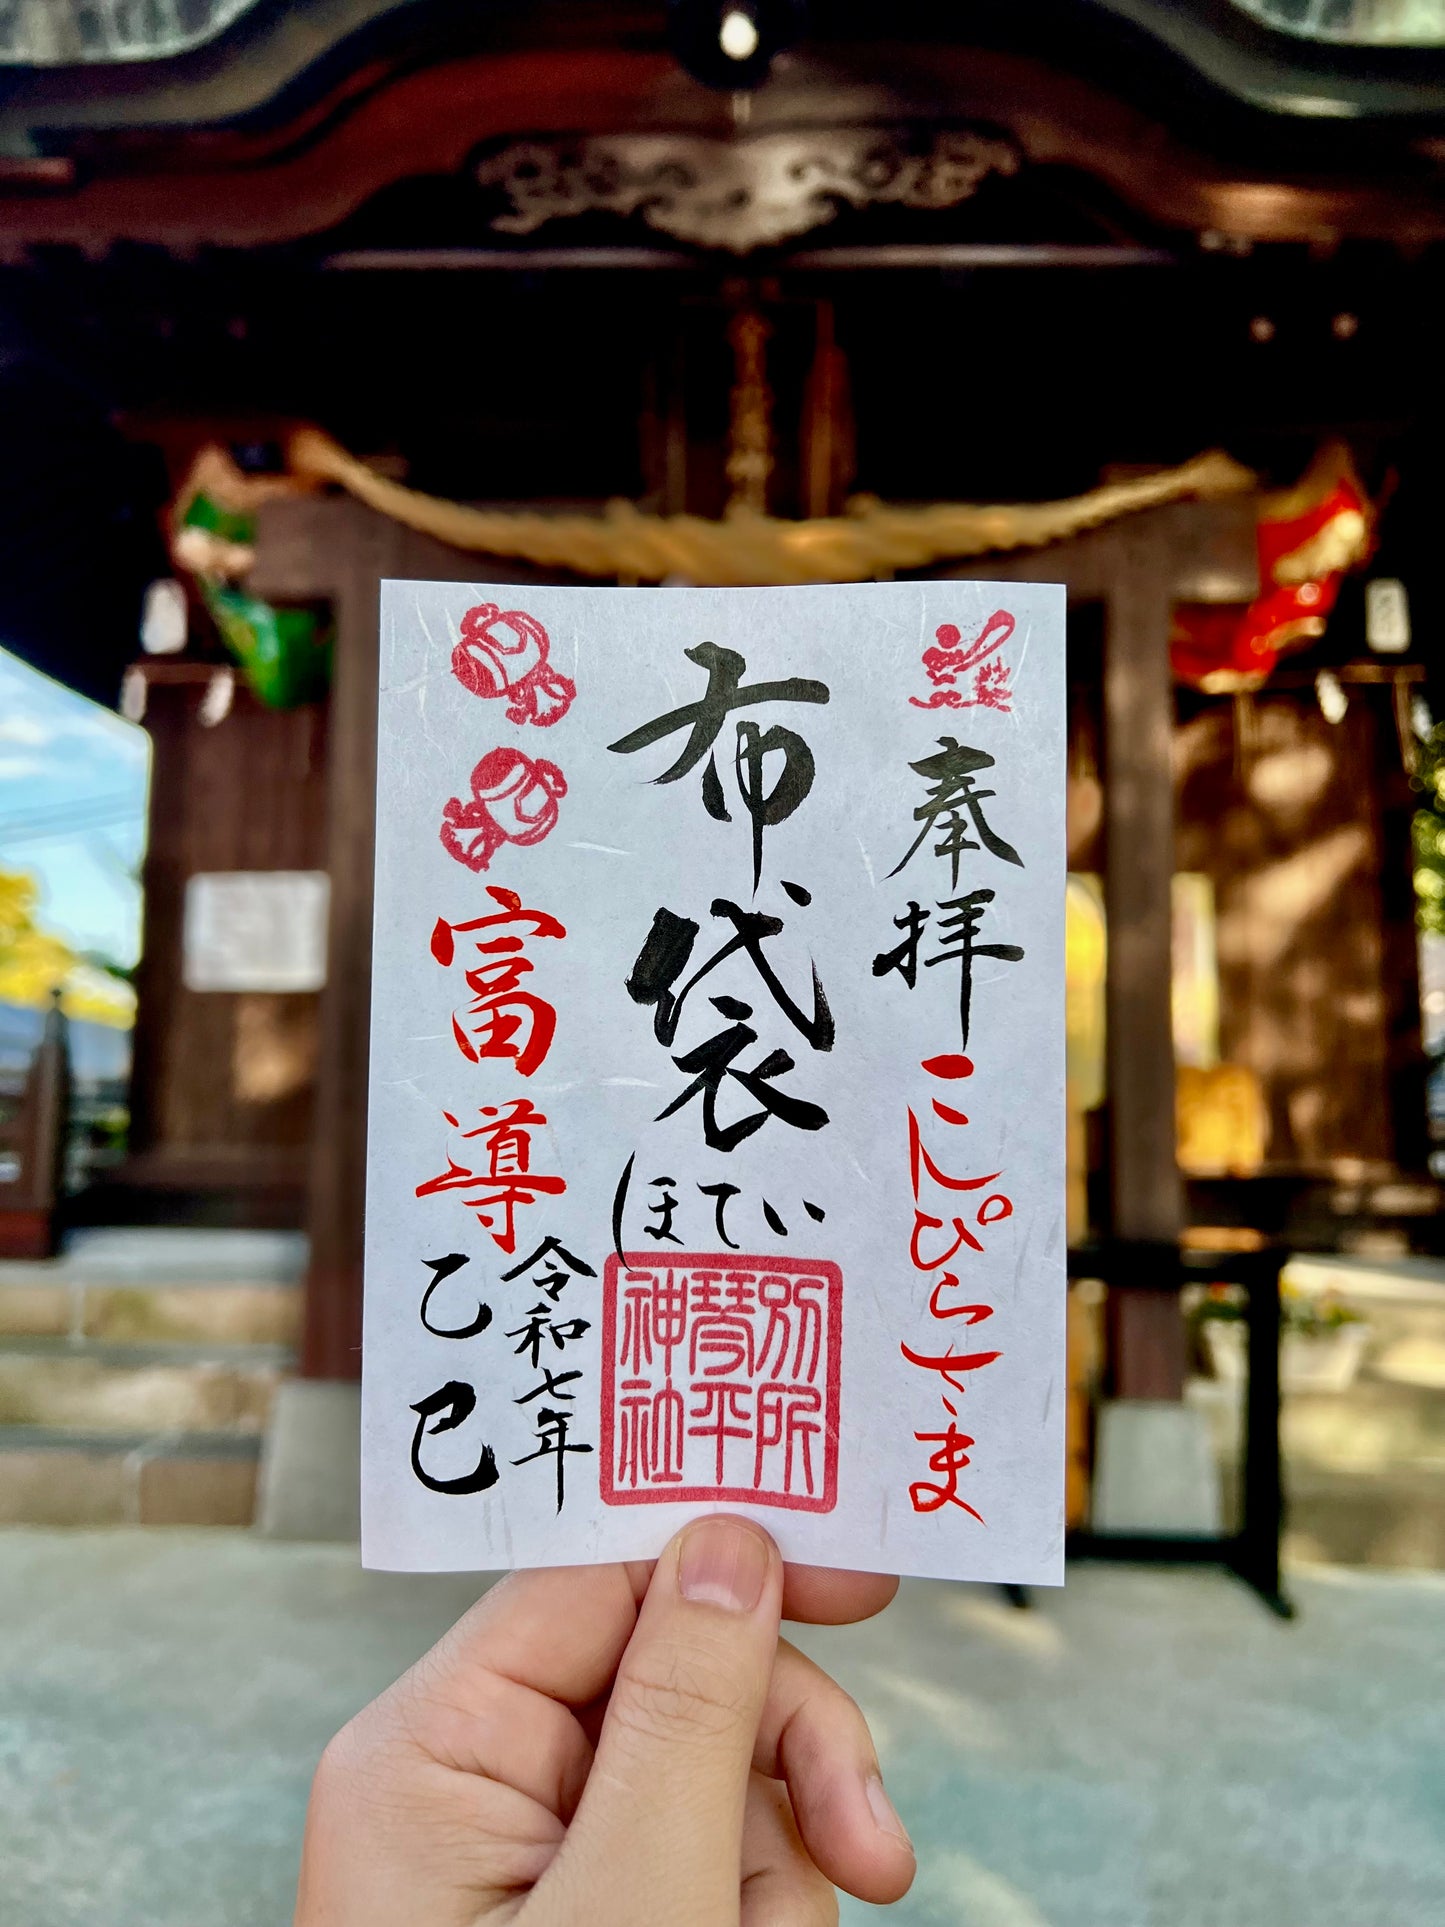 奉拝
こんぴらさま
布袋
ほてい
別所
琴平
神社
富導
令和七年
乙巳